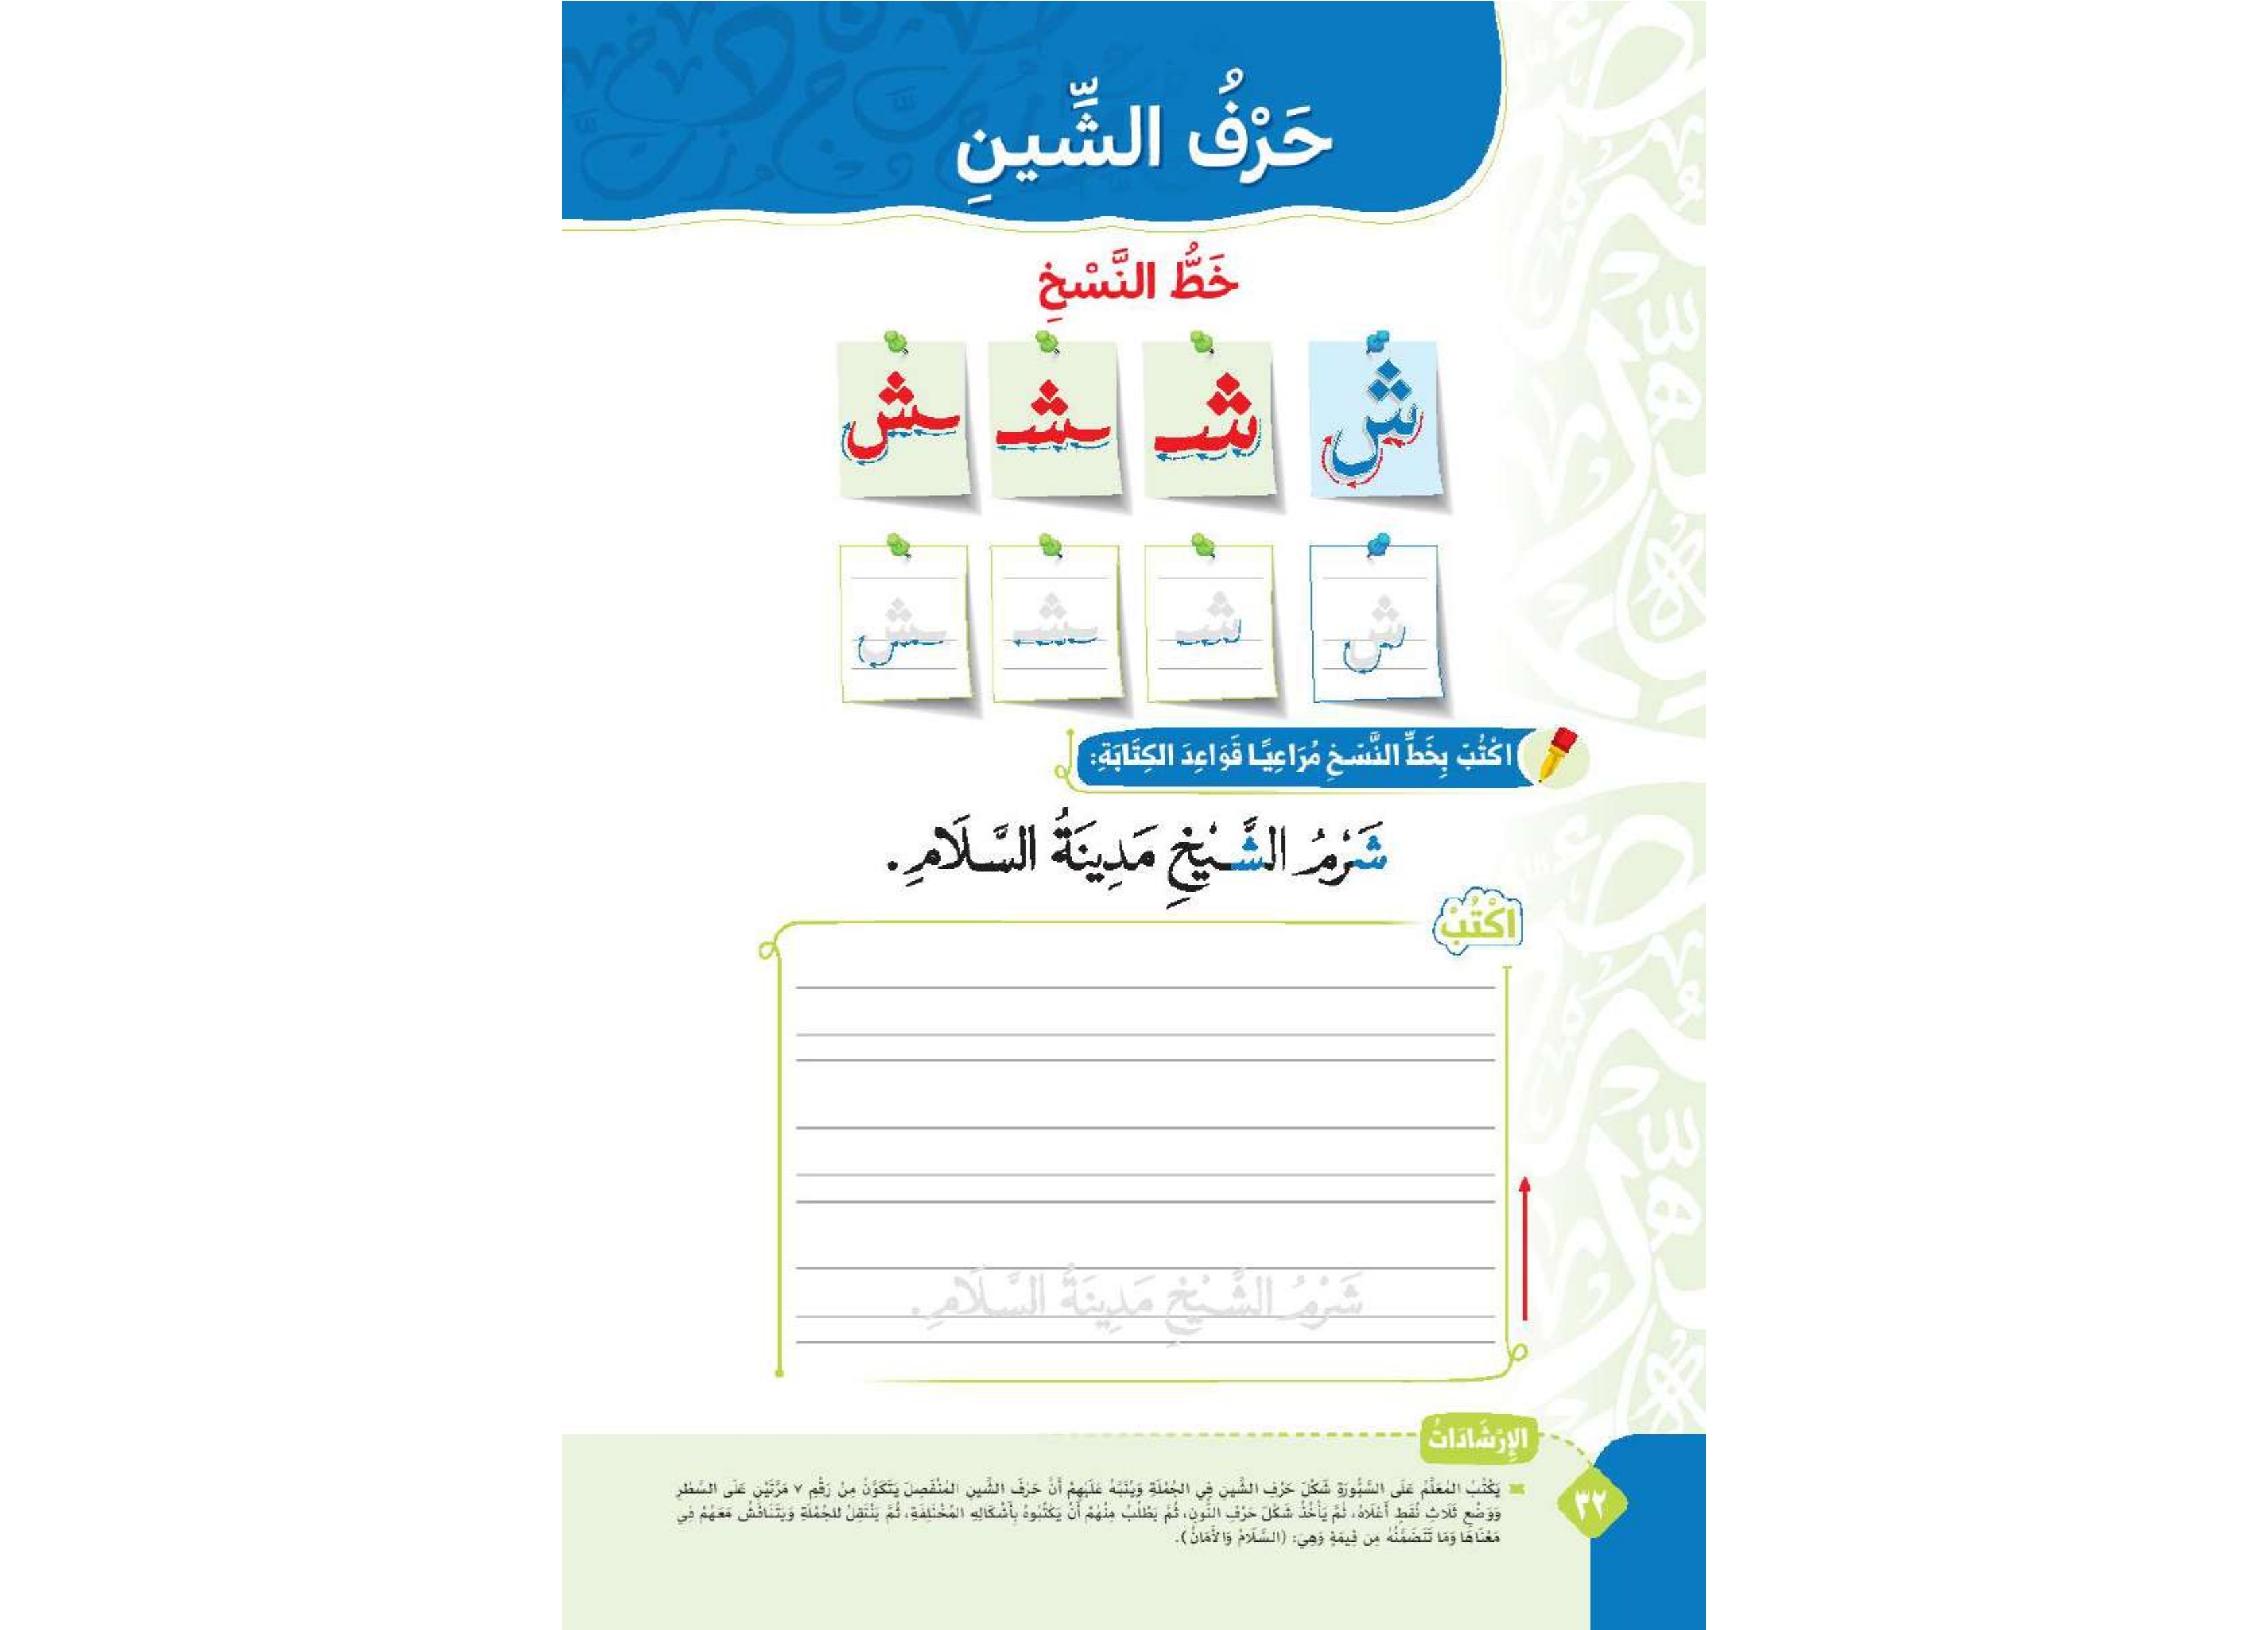 حَرْفُ الشِّينِ
خَطُّ النَّسْخِ
ش شـ ـشـ ـش
ش شـ ـشـ ـش
اكْتُبْ بِخَطِّ النَّسْخِ مُرَاعِيًا قَوَاعِدَ الكِتَابَةِ:
شَرْمُ الشَّيْخِ مَدِينَةُ السَّلَامِ.
اكْتُبْ
شَرْمُ الشَّيْخِ مَدِينَةُ السَّلَامِ.
الإِرْشَادَاتُ
يَكْتُبُ المُعَلِّمُ عَلَى السَّبُّورَةِ شَكْلَ حَرْفِ الشِّينِ فِي الجُمْلَةِ وَيُنَبِّهُ عَلَيْهِمْ أَنَّ حَرْفَ الشِّينِ المُنْفَصِلَ يَتَكَوَّنُ مِنْ رَقْمِ ٧ مَرَّتَيْنِ عَلَى السَّطْرِ
وَوَضْعِ ثَلَاثِ نُقَطٍ أَعْلَاهُ، ثُمَّ يَأْخُذُ شَكْلَ حَرْفِ النُّونِ، ثُمَّ يَطْلُبُ مِنْهُمْ أَنْ يَكْتُبُوهُ بِأَشْكَالِهِ المُخْتَلِفَةِ، ثُمَّ يَنْتَقِلُ للجُمْلَةِ وَيَتَنَاقَشُ مَعَهُمْ فِي
مَعْنَاهَا وَمَا تَتَضَمَّنُهُ مِن قِيمَةٍ وَهِيَ: (السَّلَامُ وَالأَمَانُ).
٣٢